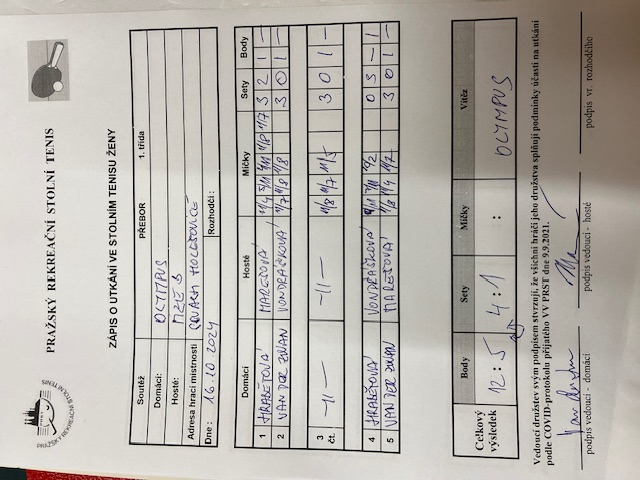 PRAŽSKÝ REKREAČNÍ STOLNÍ TENIS
PRAŽSKÝ REKREAČNÍ STOLNÍ TENIS
ZÁPIS O UTKÁNÍ VE STOLNÍM TENISU ŽENY
Soutěž PŘEBOR 1. třída
Domácí: OLYMPUS
Hosté: MELE B
Adresa hrací místnosti SQUASH HOLEŠOVICE
Dne: 16.10.2024 Rozhodčí:
Domácí Hosté Míčky Sety Body
1 HRABĚTOVÁ MAREŠOVÁ 11/4 5/11 7/11 11/8 11/7 3 2 1 -
2 VAN DER ZWAN VONDRÁČKOVÁ 11/7 11/8 11/8 3 0 1 -
3 čt. -11- -11- 11/8 11/7 11/5 3 0 1 -
4 HRABĚTOVÁ VONDRÁČKOVÁ 7/11 0 3 - 1
5 VAN DER ZWAN MAREŠOVÁ 11/8 11/4 11/2 3 0 1 -
Celkový výsledek Body Sety Míčky Vítěz
12:5 4:1 : OLYMPUS
Vedoucí družstev svým podpisem stvrzují, že všichni hráči jeho družstva splňují podmínky účasti na utkání
podle COVID-protokolu přijatého VV PRST dne 9.9.2021.
podpis vedoucí - domácí podpis vedoucí - hosté podpis vr. rozhodčího